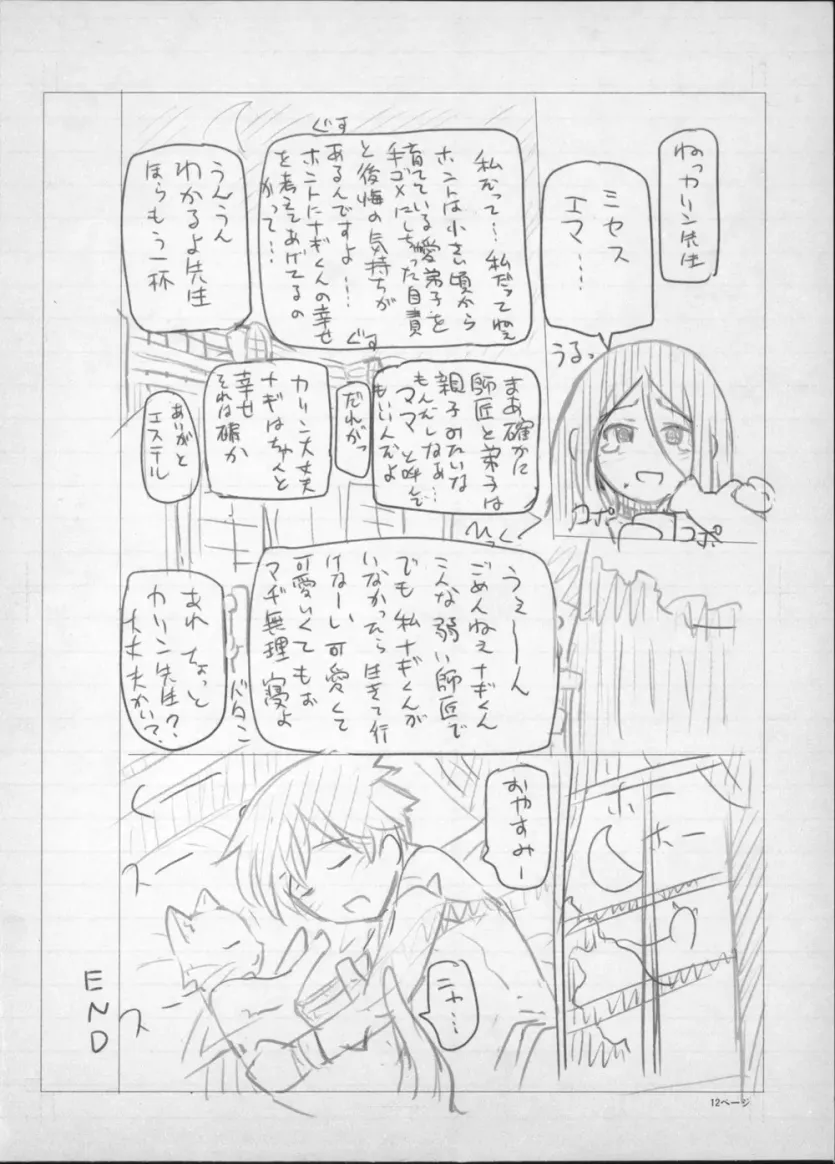 ねっカリン先生
ミセス
エマ……
うるっ
コポ
コポ
ぐす
私だって…私だってねぇ
ホントは小さい頃から
育てている愛弟子を
手ゴメにしちゃった自責
と後悔の気持ちが
あるんですよ……
ホントにナギくんの幸せ
を考えてあげてるの
かって……
ぐす
うんうん
わかるよ先生
ほらもう一杯
まあ確かに
師匠と弟子は
親子みたいな
もんだしなぁ…
ママと呼んで
もいいんだよ
だれがっ
カリン大丈夫
ナギはちゃんと
幸せ
それは確か
ありがと
エステル
ひっく
うぇーん
ごめんねぇナギくん
こんな弱い師匠で
でも私ナギくんが
いなかったら生きて行
けなーい可愛くて
可愛いくてもぉ
マヂ無理 寝よ
バタン
あれちょっと
カリン先生?
大丈夫かい?
ホー
ホー
おやすみー
スー
スー
ニャ…
END
12ページ